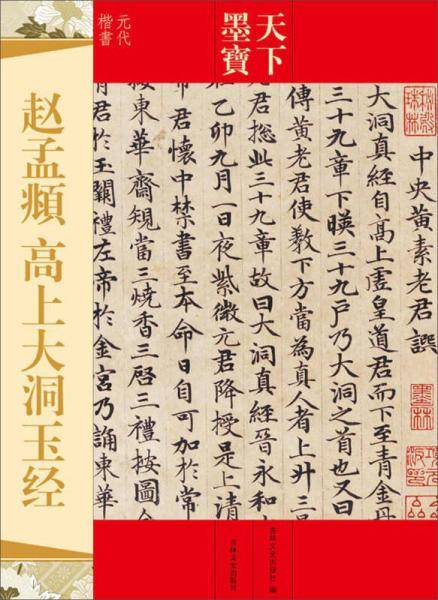 天下
墨寶
元代
楷書
赵孟頫 高上大洞玉经
中央黄素老君譔
大洞真經自高上虛皇道君而下至青金丹
三十九章下暎三十九户乃大洞之首也又曰
傳黄老君使教下方當為真人者上升三
君揔此三十九章故曰大洞真經晉永和
乙卯九月一日夜紫微元君降授是上清
君懷中禁書至本命日自可加於常
按東華齋規當三燒香三啓三禮按圖
君於玉闕禮左帝於金宮乃誦東華
墨林
吉林文史出版社 编
吉林文史出版社